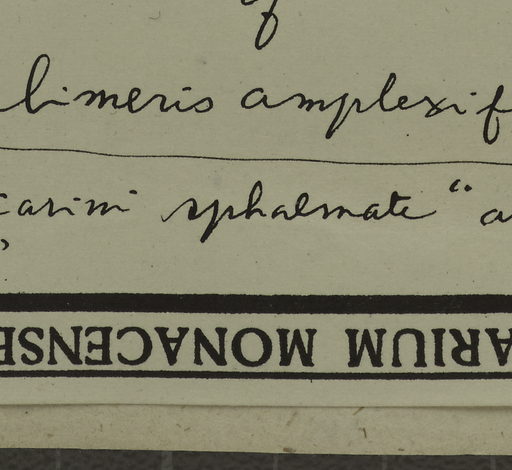 limeris amplexif
carini sphalmate “ a
”
ARIUM MONACENSE